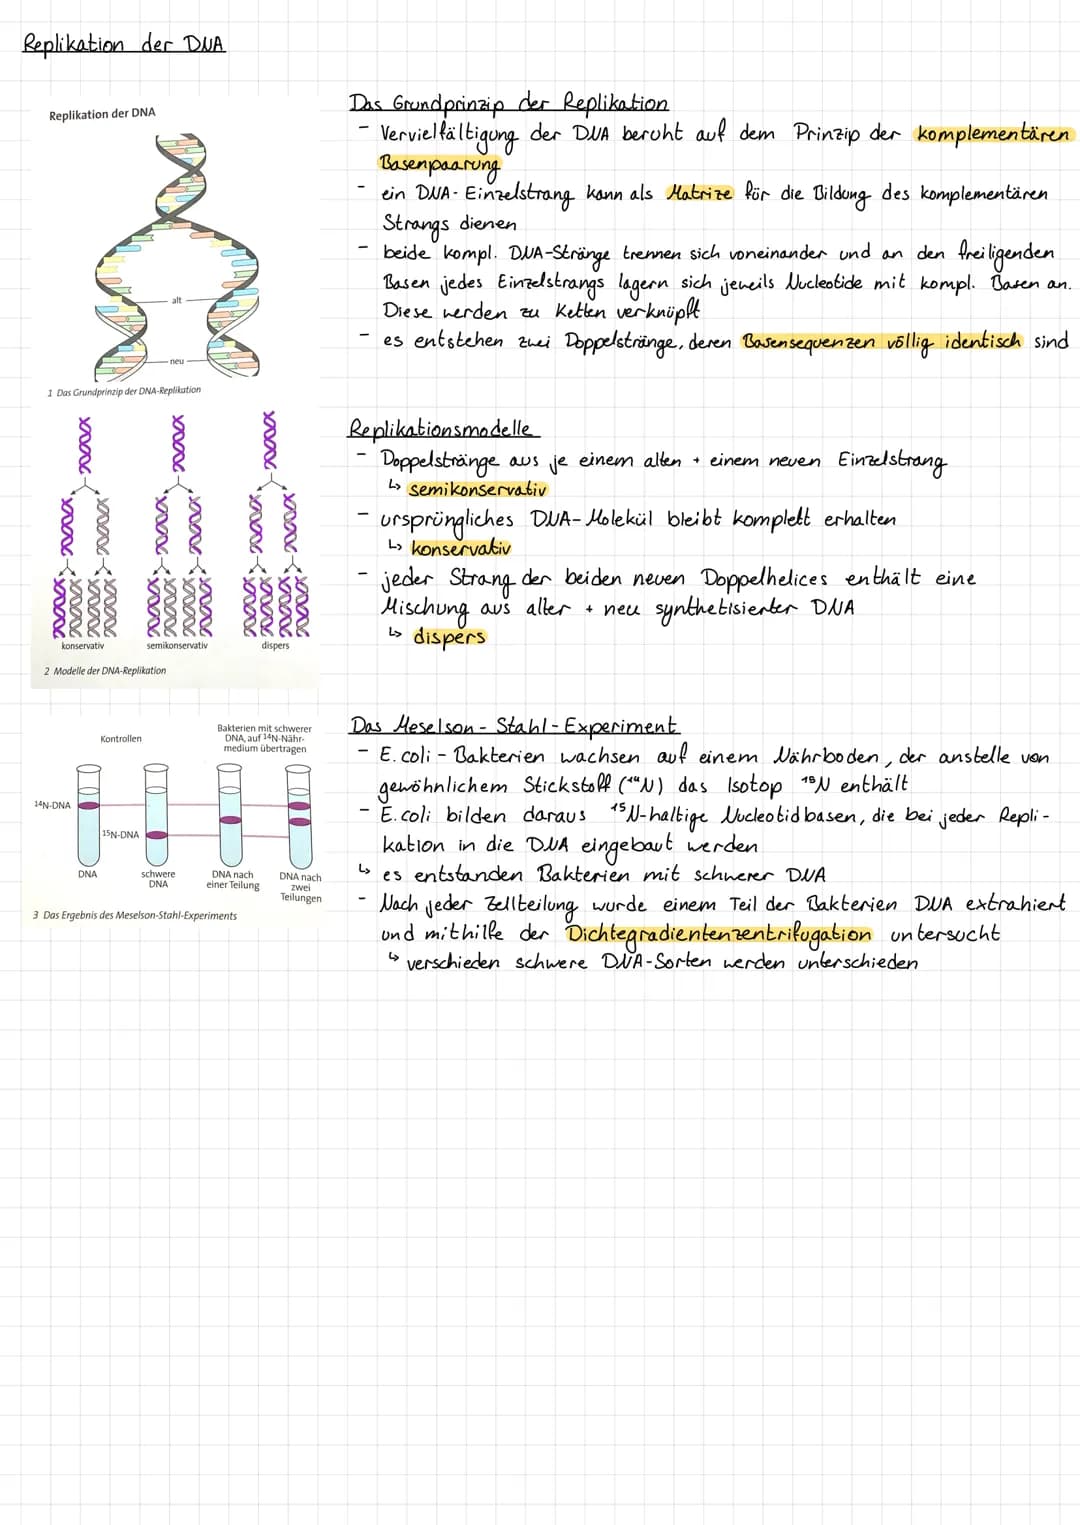 Replikation der DNA
Replikation der DNA
alt
neu
1 Das Grundprinzip der DNA-Replikation
konservativ
semikonservativ
dispers
2 Modelle der DNA-Replikation
Kontrollen
Bakterien mit schwerer
DNA, auf ¹⁴N-Nähr-
medium übertragen
¹⁴N-DNA
¹⁵N-DNA
DNA
schwere
DNA
DNA nach
einer Teilung
DNA nach
zwei
Teilungen
3 Das Ergebnis des Meselson-Stahl-Experiments
Das Grundprinzip der Replikation
- Vervielfältigung der DNA beruht auf dem Prinzip der komplementären
Basenpaarung
- ein DNA-Einzelstrang kann als Matrize für die Bildung des komplementären
Strangs dienen
- beide kompl. DNA-Stränge trennen sich voneinander und an den freiligenden
Basen jedes Einzelstrangs lagern sich jeweils Nucleotide mit kompl. Basen an.
Diese werden zu Ketten verknüpft
- es entstehen zwei Doppelstränge, deren Basensequenzen völlig identisch sind
Replikationsmodelle
- Doppelstränge aus je einem alten + einem neuen Einzelstrang
↳ semikonservativ
- ursprüngliches DNA-Molekül bleibt komplett erhalten
↳ konservativ
- jeder Strang der beiden neuen Doppelhelices enthält eine
Mischung aus alter + neu synthetisierter DNA
↳ dispers
Das Meselson-Stahl-Experiment
- E. coli - Bakterien wachsen auf einem Nährboden, der anstelle von
gewöhnlichem Stickstoff (¹⁴N) das Isotop ¹⁵N enthält
- E. coli bilden daraus ¹⁵N-haltige Nucleotidbasen, die bei jeder Repli-
kation in die DNA eingebaut werden
↳ es entstanden Bakterien mit schwerer DNA
- Nach jeder Zellteilung wurde einem Teil der Bakterien DNA extrahiert
und mithilfe der Dichtegradientenzentrifugation untersucht
↳ verschieden schwere DNA-Sorten werden unterschieden